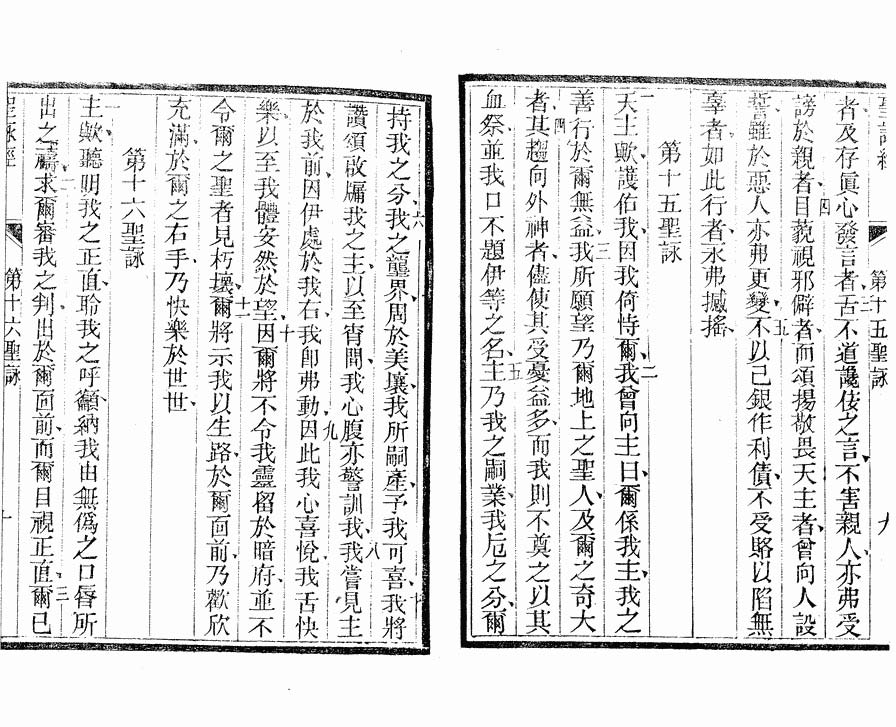 聖詠經
第十五聖詠
九
者及存眞心發言者三舌不道讒佞之言不害親人亦弗受
謗於親者四目藐視邪僻者而頌揚敬畏天主者曾向人設
誓雖於惡人亦弗更變五不以己銀作利債不受賂以陷無
辜者如此行者永弗撼搖
第十五聖詠
一天主歟護佑我因我倚恃爾二我曾向主曰爾係我主我之
善行於爾無益三我所願望乃爾地上之聖人及爾之奇大
者四其趨向外神者儘使其受憂益多而我則不奠之以其
血祭並我口不題伊等之名五主乃我之嗣業我卮之分爾
持我之分六我之壟界周於美壤我所嗣產予我可喜七我將
讚頌啟牖我之主以至宵間我心腹亦警訓我八我嘗見主
於我前因伊處於我右我卽弗動九因此我心喜悅我舌快
樂以至我體安然於望十因爾將不令我靈留於暗府並不
令爾之聖者見朽壞十一爾將示我以生路於爾面前乃歡欣
充滿於爾之右手乃快樂於世世
第十六聖詠
一主歟聽明我之正直聆我之呼籲納我由無僞之口唇所
出之禱二求爾審我之判出於爾面前而爾目視正直三爾已
聖詠經
第十六聖詠
十